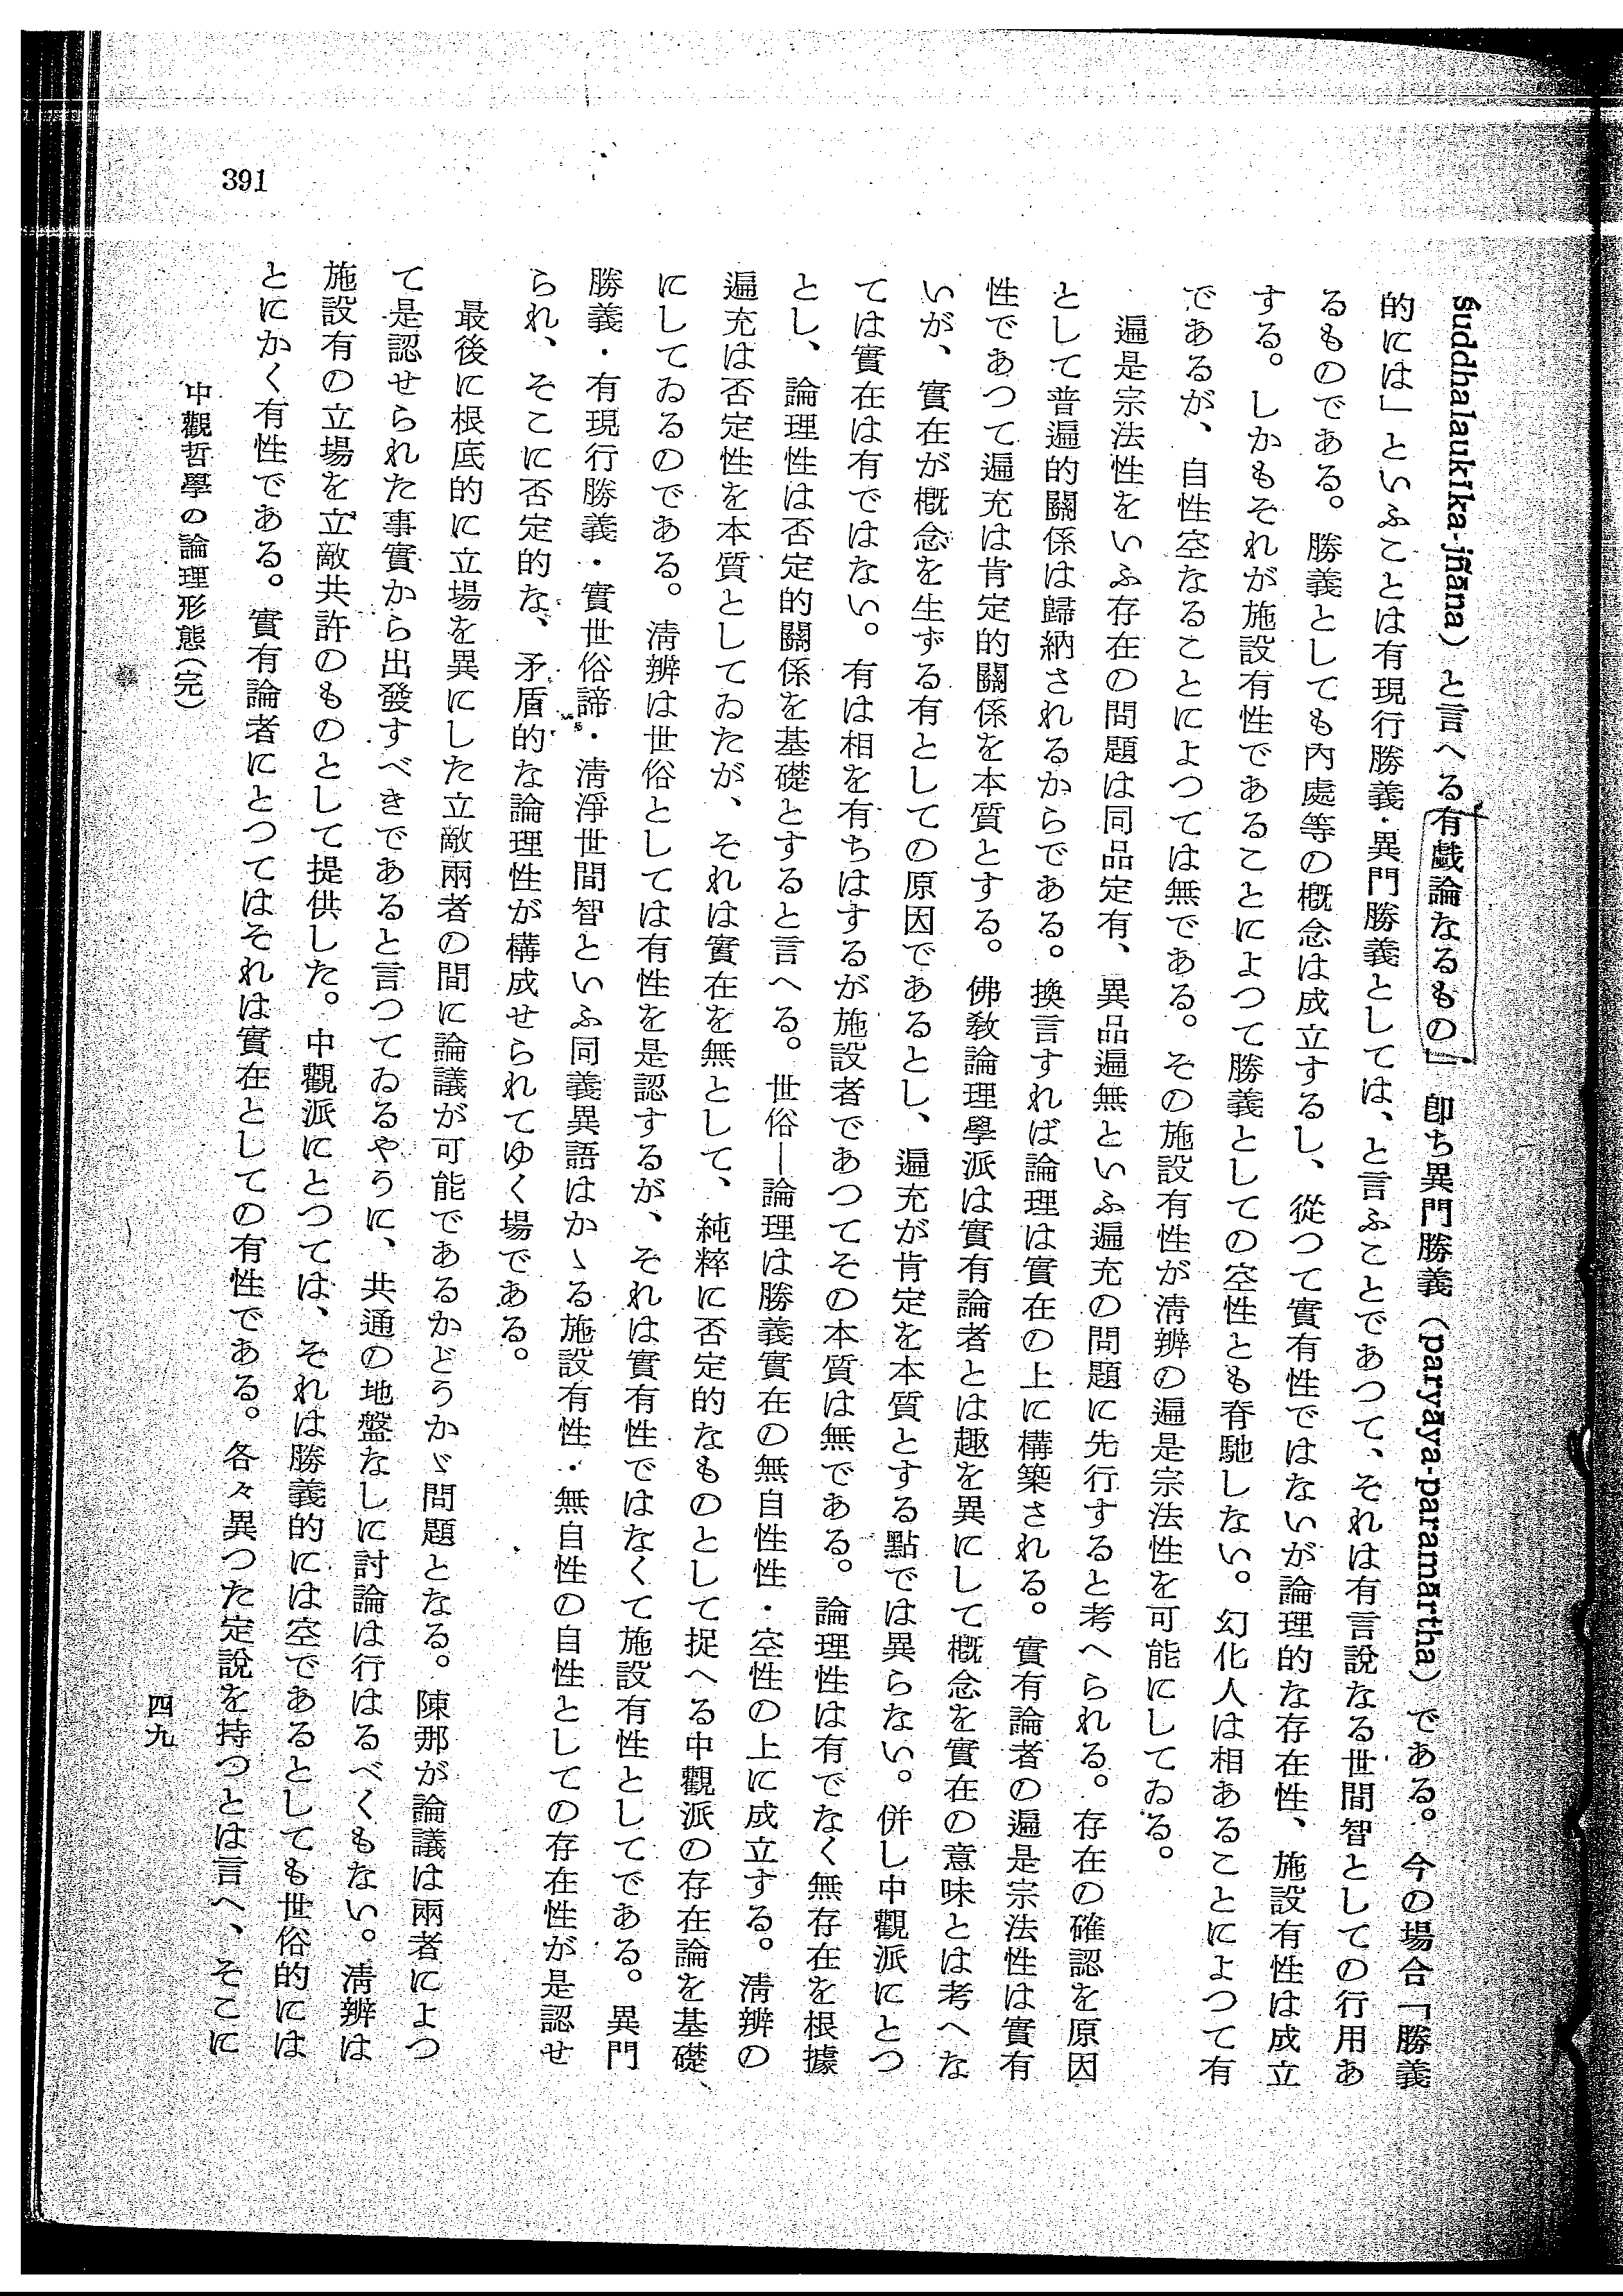 śuddhalaukika-jñāna）と言へる有戲論なるもの」卽ち異門勝義（paryāya-paramārtha）である。今の場合「勝義
的には」といふことは有現行勝義・異門勝義としては、と言ふことであつて、それは有言說なる世間智としての行用あ
るものである。勝義としても內處等の概念は成立するし、從つて實有性ではないが論理的な存在性、施設有性は成立
する。しかもそれが施設有性であることによつて勝義としての空性とも脊馳しない。幻化人は相あることによつて有
であるが、自性空なることによつては無である。その施設有性が淸辨の遍是宗法性を可能にしてゐる。
遍是宗法性をいふ存在の問題は同品定有、異品遍無といふ遍充の問題に先行すると考へられる。存在の確認を原因
として普遍的關係は歸納されるからである。換言すれば論理は實在の上に構築される。實有論者の遍是宗法性は實有
性であつて遍充は肯定的關係を本質とする。佛敎論理學派は實有論者とは趣を異にして概念を實在の意味とは考へな
いが、實在が概念を生ずる有としての原因であるとし、遍充が肯定を本質とする點では異らない。併し中觀派にとつ
ては實在は有ではない。有は相を有ちはするが施設者であつてその本質は無である。論理性は有でなく無存在を根據
とし、論理性は否定的關係を基礎とすると言へる。世俗―論理は勝義實在の無自性性・空性の上に成立する。淸辨の
遍充は否定性を本質としてゐたが、それは實在を無として、純粹に否定的なものとして捉へる中觀派の存在論を基礎
にしてゐるのである。淸辨は世俗としては有性を是認するが、それは實有性ではなくて施設有性としてである。異門
勝義・有現行勝義・實世俗諦・淸淨世間智といふ同義異語はかゝる施設有性・無自性の自性としての存在性が是認せ
られ、そこに否定的な、矛盾的な論理性が構成せられてゆく場である。
最後に根底的に立場を異にした立敵兩者の間に論議が可能であるかどうかゞ問題となる。陳那が論議は兩者によつ
て是認せられた事實から出發すべきであると言つてゐるやうに、共通の地盤なしに討論は行はるべくもない。淸辨は
施設有の立場を立敵共許のものとして提供した。中觀派にとつては、それは勝義的には空であるとしても世俗的には
とにかく有性である。實有論者にとつてはそれは實在としての有性である。各々異つた定說を持つとは言へ、そこに
中觀哲學の論理形態（完）
四九
391